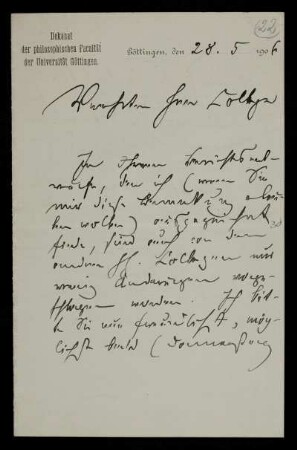 22
Dekanat
der philosophischen Facultät
der Universität Göttingen.
Göttingen, den 28. 5 1906
Verehrter Herr College
In Ihrem Berichtsent-
wurfe, den ich (wenn Sie
mir diese Bemerkung erlau-
ben wollen) ausgezeichnet
finde, sind auch von den
anderen HH. Collegen nur
wenig Änderungen vorge-
schlagen worden. Ich bit-
te Sie nun freundlichst, mög-
lichst bald (Donnerstag